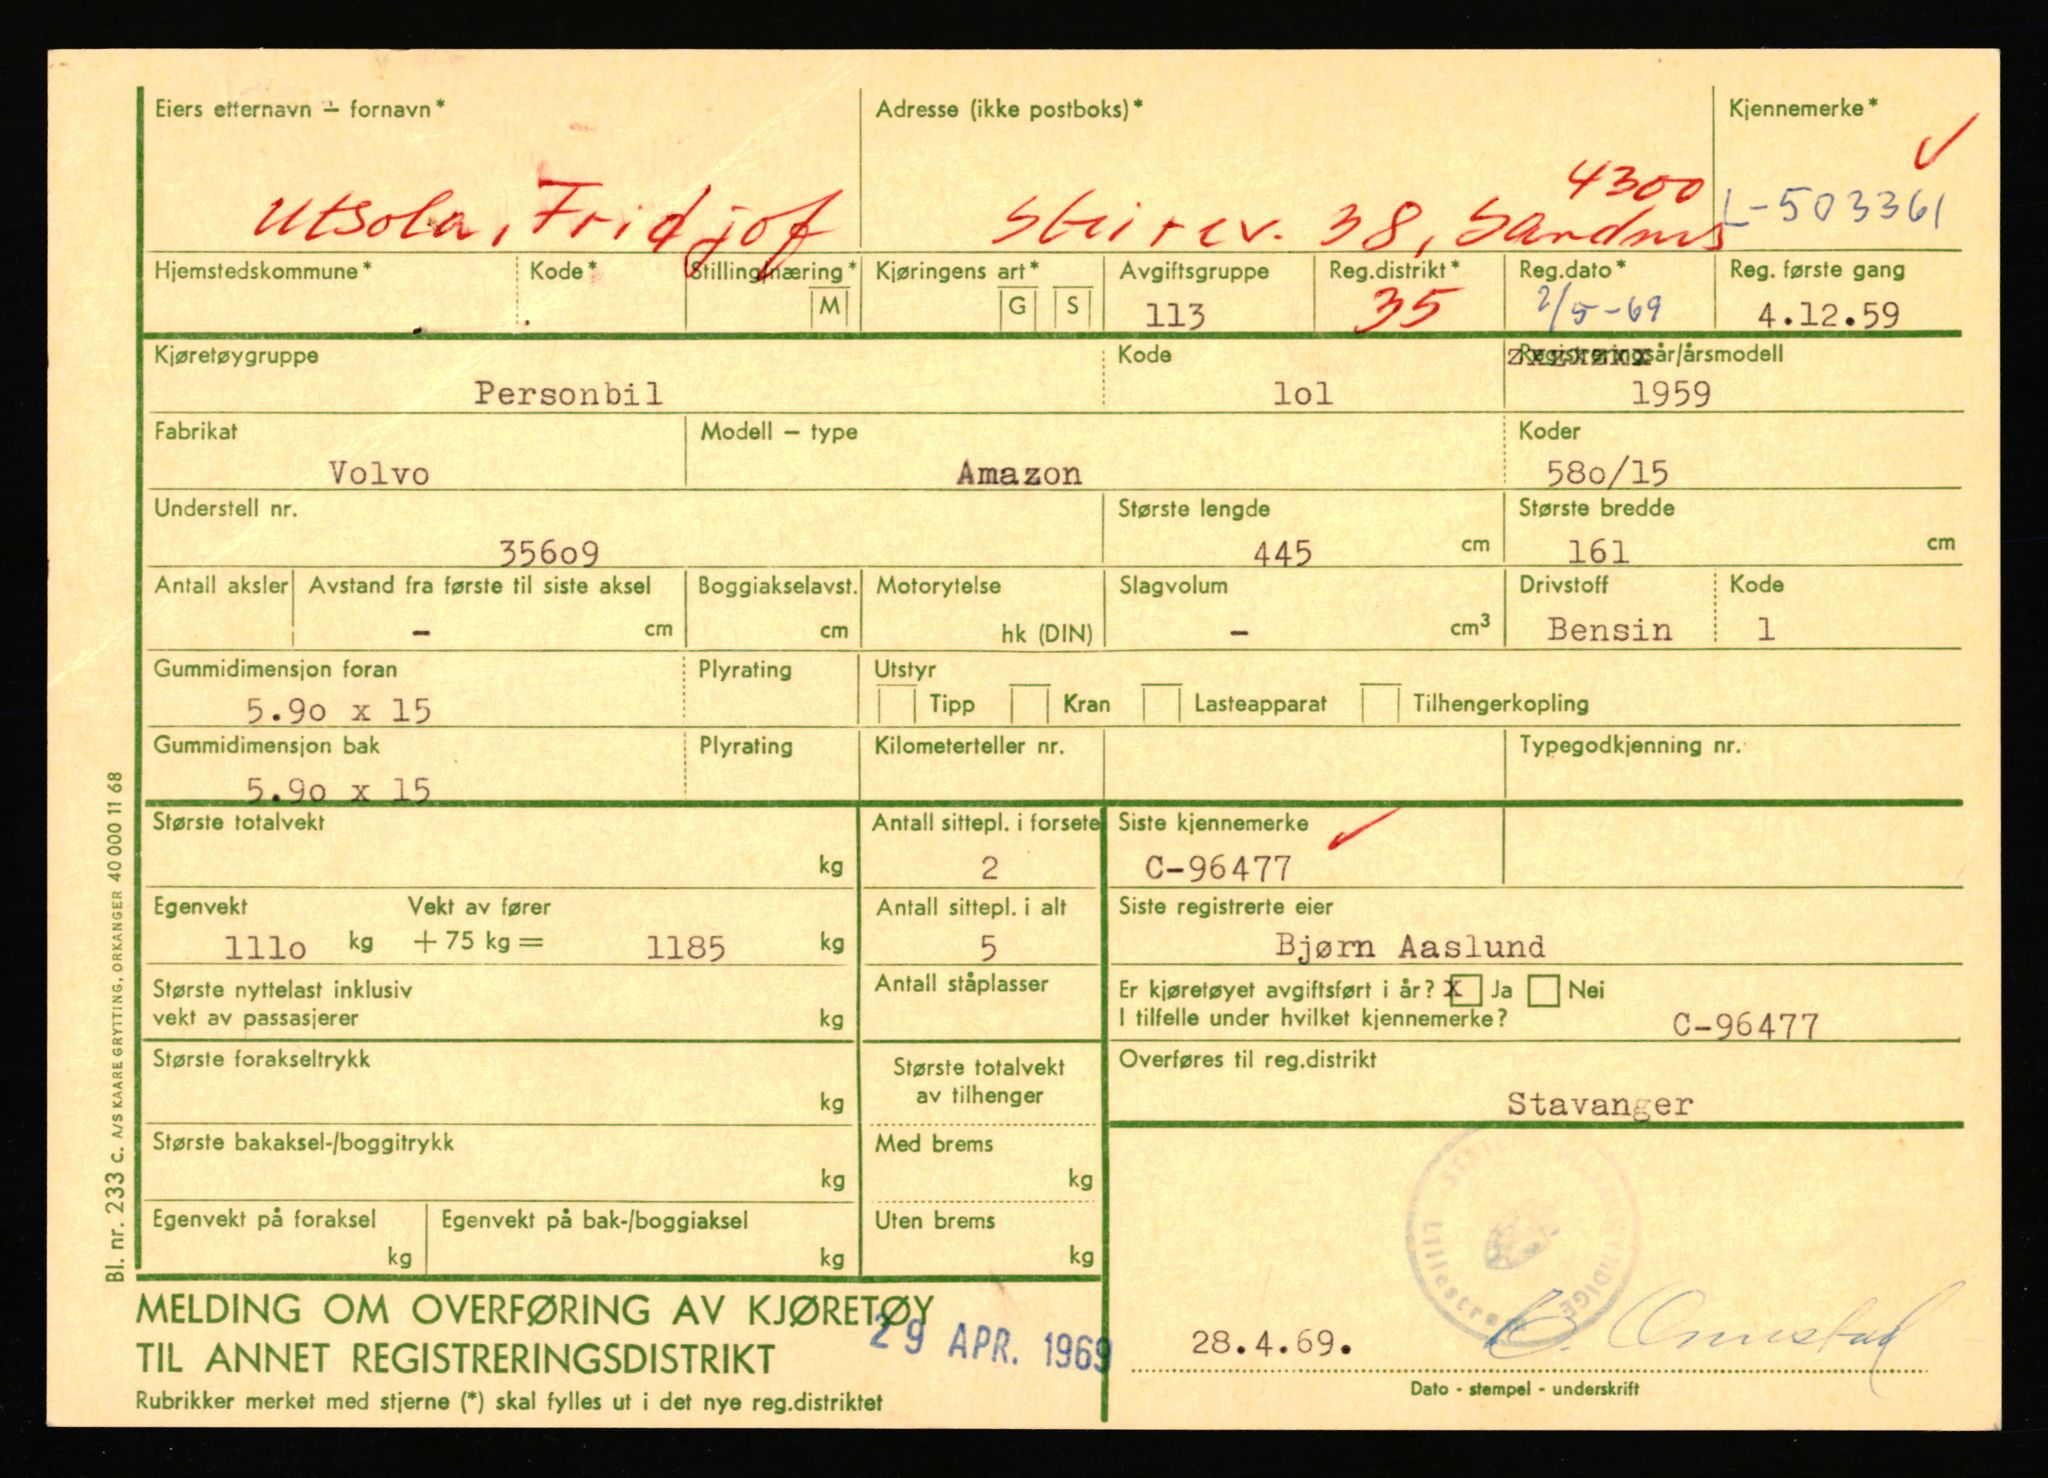 Eiers etternavn - fornavn* Adresse (ikke postboks)* Kjennemerke*
4300
Utsola, Fridjof 38, Sandnes L-503361
Hjemstedskommune* Kode* Stilling/næring* Kjøringens art* Avgiftsgruppe Reg.distrikt* Reg.dato* Reg. første gang
M G S 113 35 2/5-69 4.12.59
Kjøretøygruppe Kode Registreringsår/årsmodell
Personbil lol 1959
Fabrikat Modell – type Koder
Volvo Amazon 58o/15
Understell nr. Største lengde Største bredde
356o9 445 cm 161 cm
Antall aksler Avstand fra første til siste aksel Boggiakselavst. Motorytelse Slagvolum Drivstoff Kode
– cm cm hk (DIN) – cm³ Bensin 1
Gummidimensjon foran Plyrating Utstyr
5.9o x 15 Tipp Kran Lasteapparat Tilhengerkopling
Gummidimensjon bak Plyrating Kilometerteller nr. Typegodkjenning nr.
5.9o x 15
Største totalvekt Antall sittepl. i forsete Siste kjennemerke
kg 2 C-96477
Egenvekt Vekt av fører Antall sittepl. i alt Siste registrerte eier
111o kg + 75 kg = 1185 kg 5 Bjørn Aaslund
Største nyttelast inklusiv Antall ståplasser Er kjøretøyet avgiftsført i år? x Ja Nei
vekt av passasjerer kg I tilfelle under hvilket kjennemerke? C-96477
Største forakseltrykk Største totalvekt Overføres til reg.distrikt
kg av tilhenger Stavanger
Største bakaksel-/boggitrykk Med brems
kg kg
Egenvekt på foraksel Egenvekt på bak-/boggiaksel Uten brems
kg kg kg
MELDING OM OVERFØRING AV KJØRETØY
TIL ANNET REGISTRERINGSDISTRIKT
29 APR. 1969
28.4.69.
Rubrikker merket med stjerne (*) skal fylles ut i det nye reg.distriktet
Dato - stempel - underskrift
Bl. nr. 233 c. A/S KAARE GRYTTING, ORKANGER 40 000 11 68